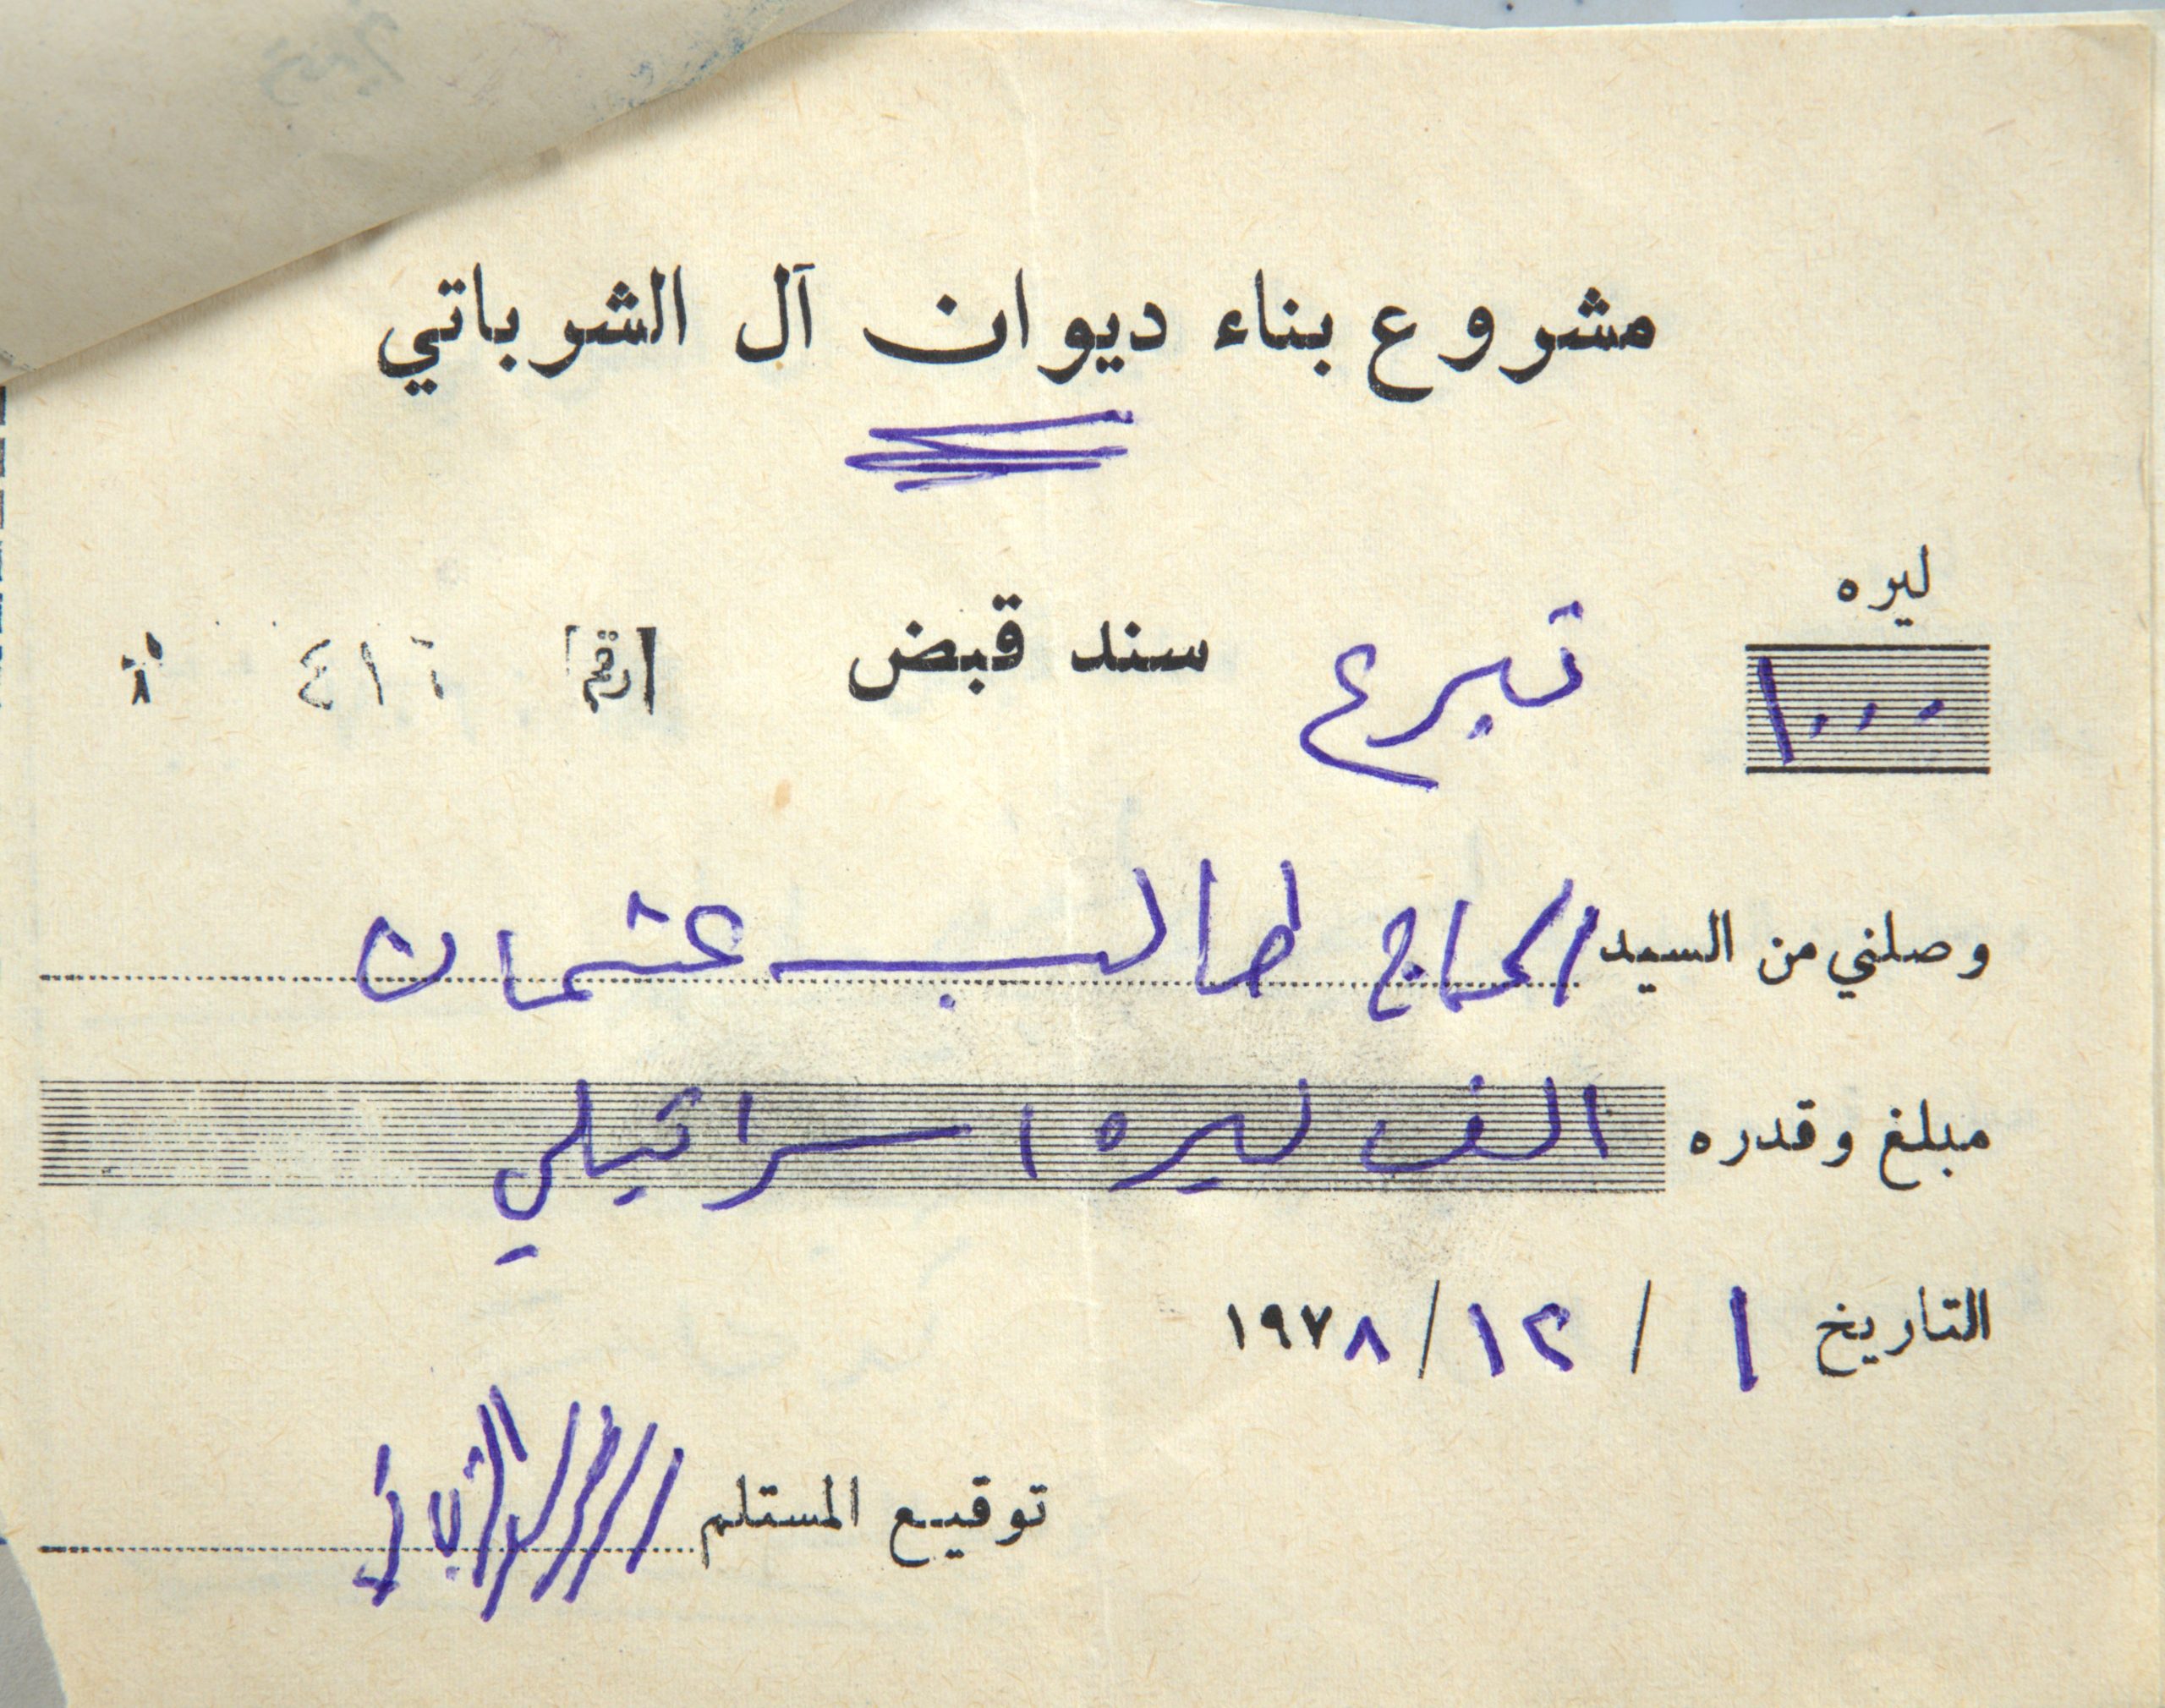 مشروع بناء ديوان آل الشرباتي
ليره
١٠٠٠ تبرع سند قبض رقم
وصلني من السيد الحاج طالب عثمان
مبلغ وقدره الف ليره اسرائيلي
التاريخ ١ / ١٢ / ١٩٧٨
توقيع المستلم